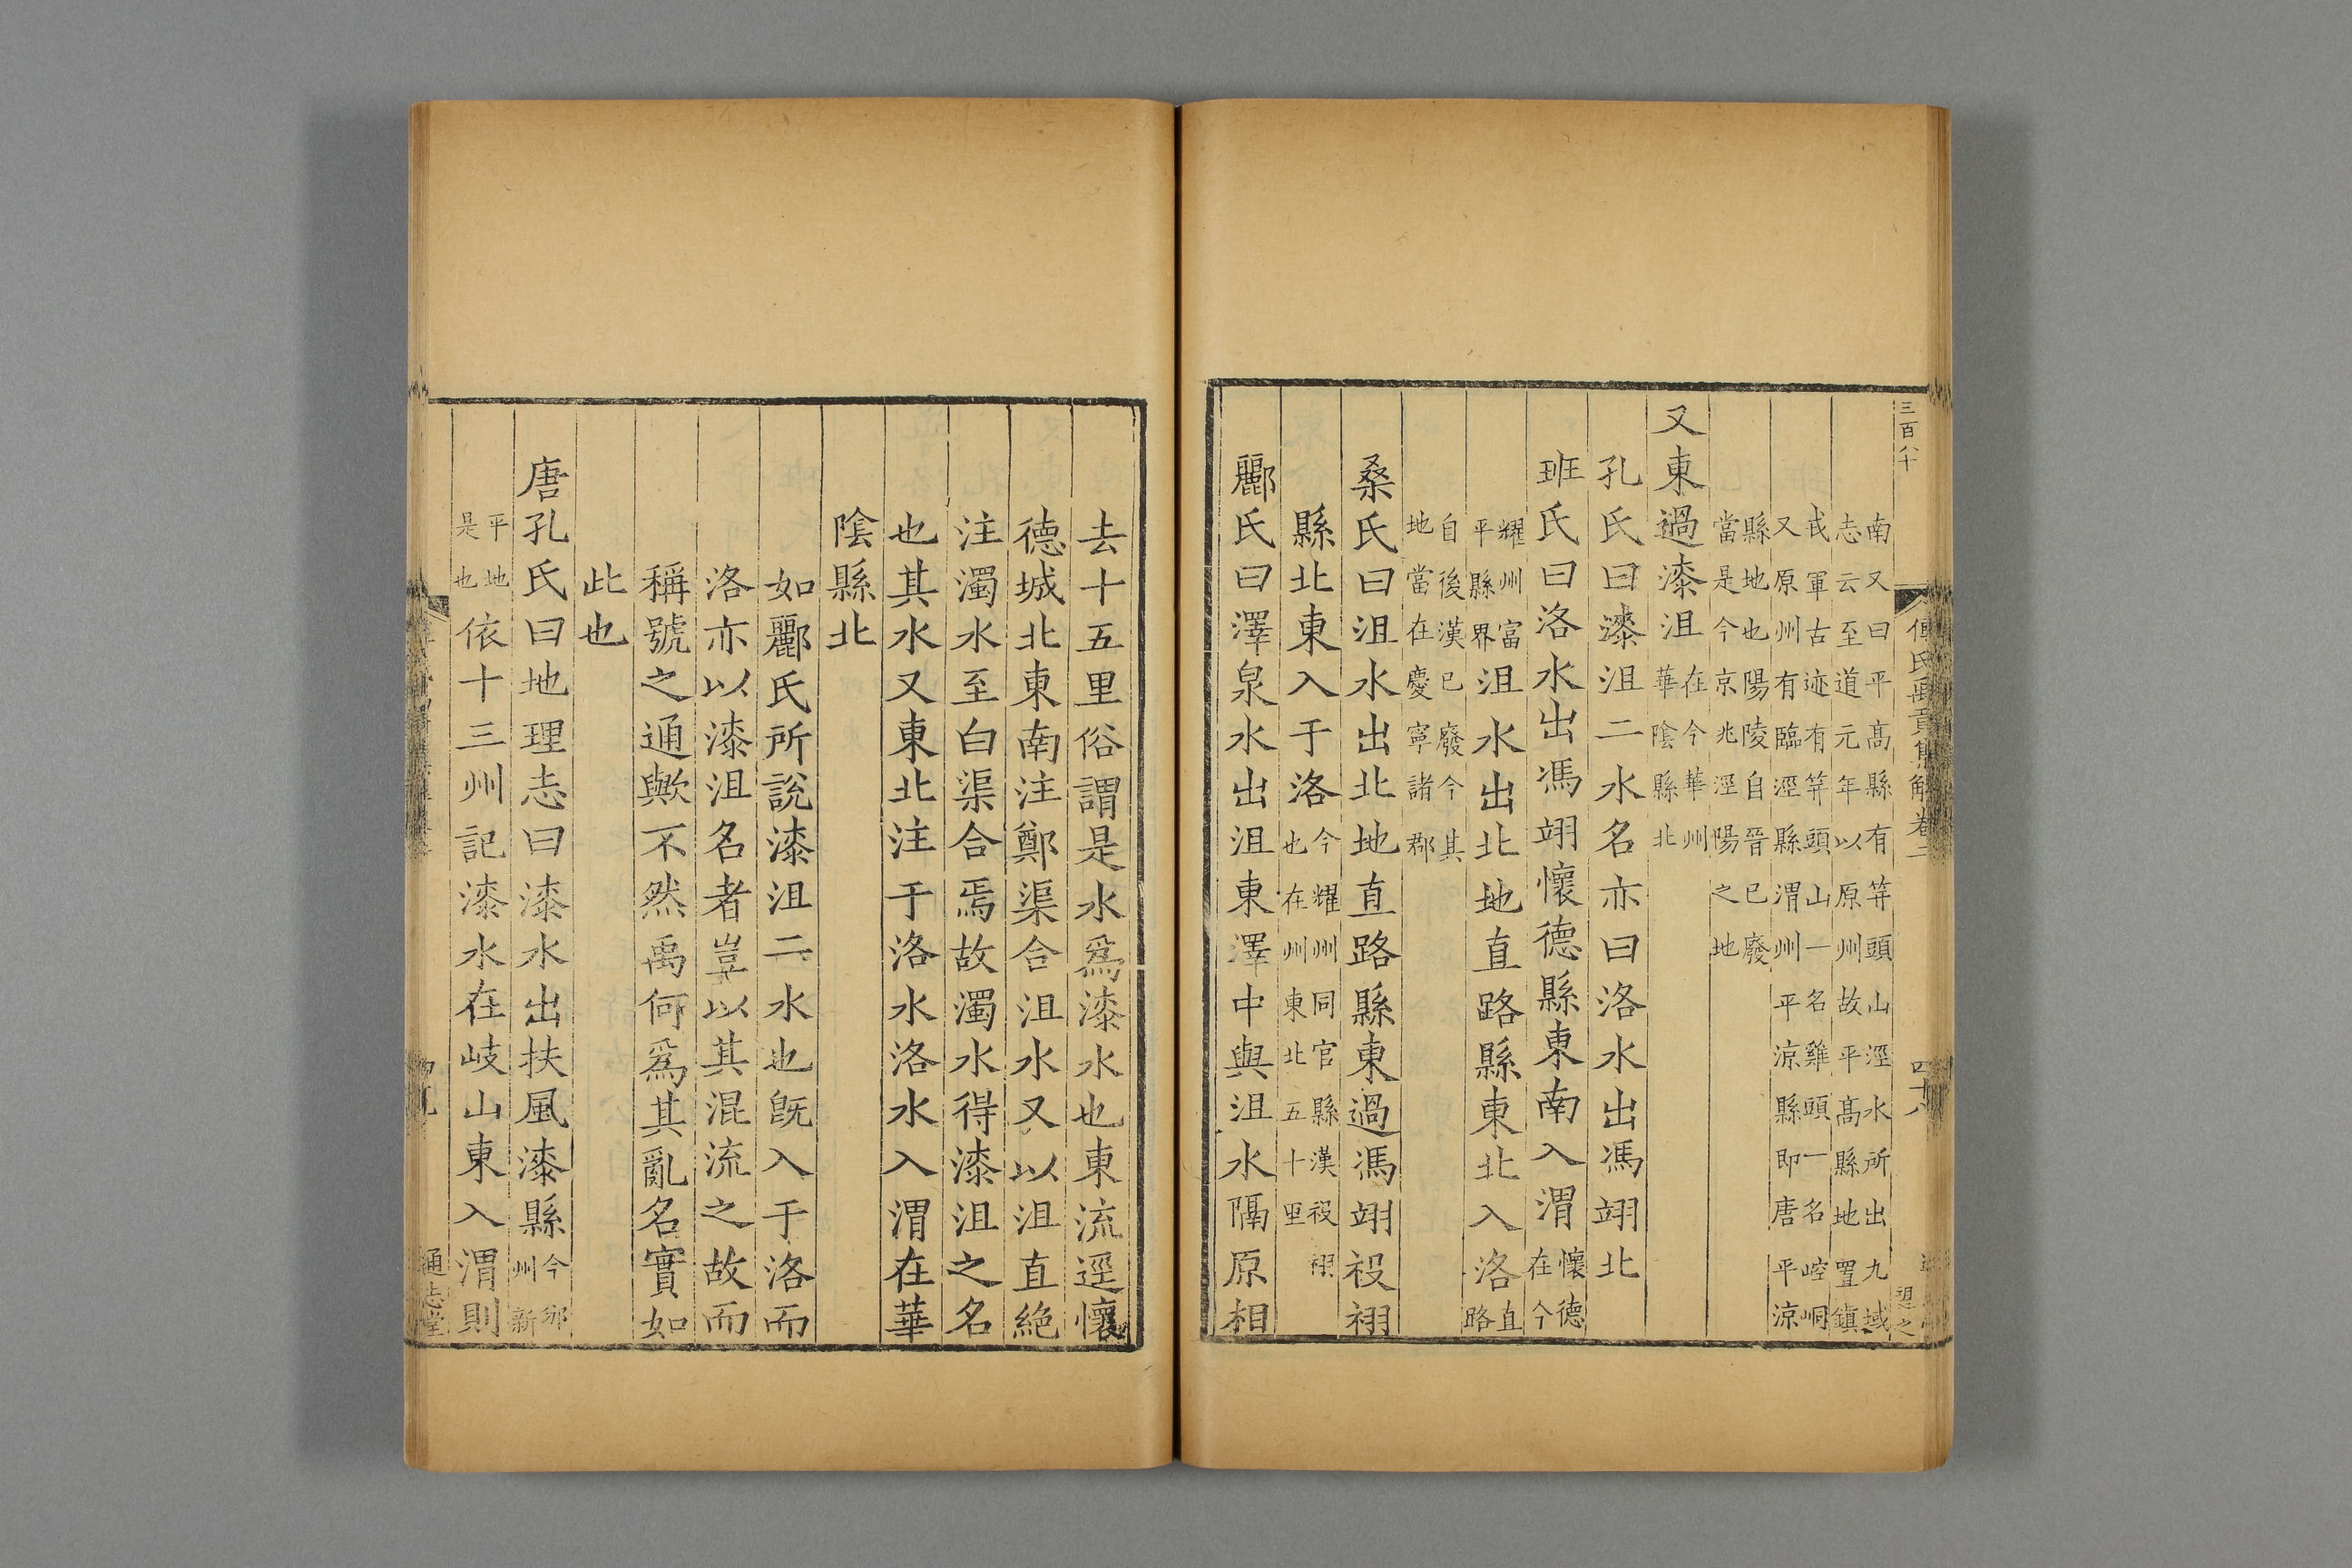 三百八十
傅氏禹貢集解卷二 四十八
望之
南又曰平髙縣有笄頭山涇水所出九域
志云至道元年以原州故平髙縣地置鎮
戎軍古迹有笄頭山一名雞頭一名崆峒
又原州有臨涇縣渭州平涼縣即唐平涼
縣地也陽陵自晉已廢
當是今京兆涇陽之地
又東過漆沮在今華州華陰縣北
孔氏曰漆沮二水名亦曰洛水出馮翊北
班氏曰洛水出馮翊懷德縣東南入渭懷德在今
耀州富平縣界沮水出北地直路縣東北入洛直路
自後漢已廢今其地當在慶寧諸郡
桑氏曰沮水出北地直路縣東過馮翊祋祤
縣北東入于洛今耀州同官縣漢祋祤也在州東北五十里
酈氏曰澤泉水出沮東澤中與沮水隔原相
去十五里俗謂是水爲漆水也東流逕懷
德城北東南注鄭渠合沮水又以沮直絶
注濁水至白渠合焉故濁水得漆沮之名
也其水又東北注于洛水洛水入渭在華
隂縣北
如酈氏所說漆沮二水也旣入于洛而
洛亦以漆沮名者豈以其混流之故而
稱號之通歟不然禹何爲其亂名實如
此也
唐孔氏曰地理志曰漆水出扶風漆縣今邠州新
平地是也依十三州記漆水在岐山東入渭則
通志堂